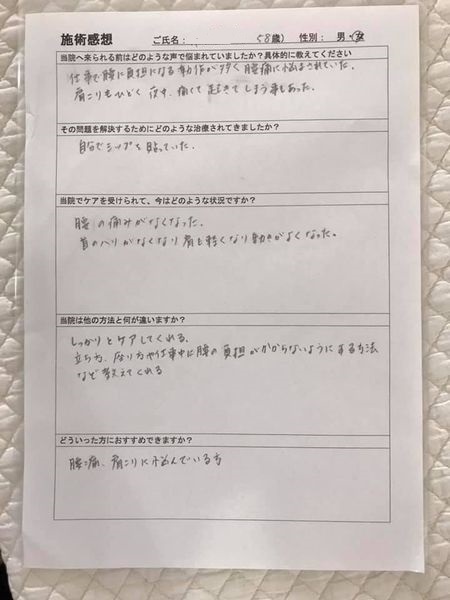 施術感想 ご氏名： 58歳） 性別： 男・女
当院へ来られる前はどのような声で悩まれていましたか？具体的に教えてください
仕事で腰に負担になる動作が多く腰痛に悩まされていた。
肩こりもひどく夜中、痛くて起きてしまう事もあった。
その問題を解決するためにどのような治療されてきましたか？
自分でシップを貼っていた。
当院でケアを受けられて、今はどのような状況ですか？
腰の痛みがなくなった。
首のハリがなくなり肩も軽くなり動きがよくなった。
当院は他の方法と何が違いますか？
しっかりとケアしてくれる。
立ち方、座り方や仕事中に腰の負担がかからないようにする方法
など教えてくれる
どういった方におすすめできますか？
腰痛、肩こりに悩んでいる方